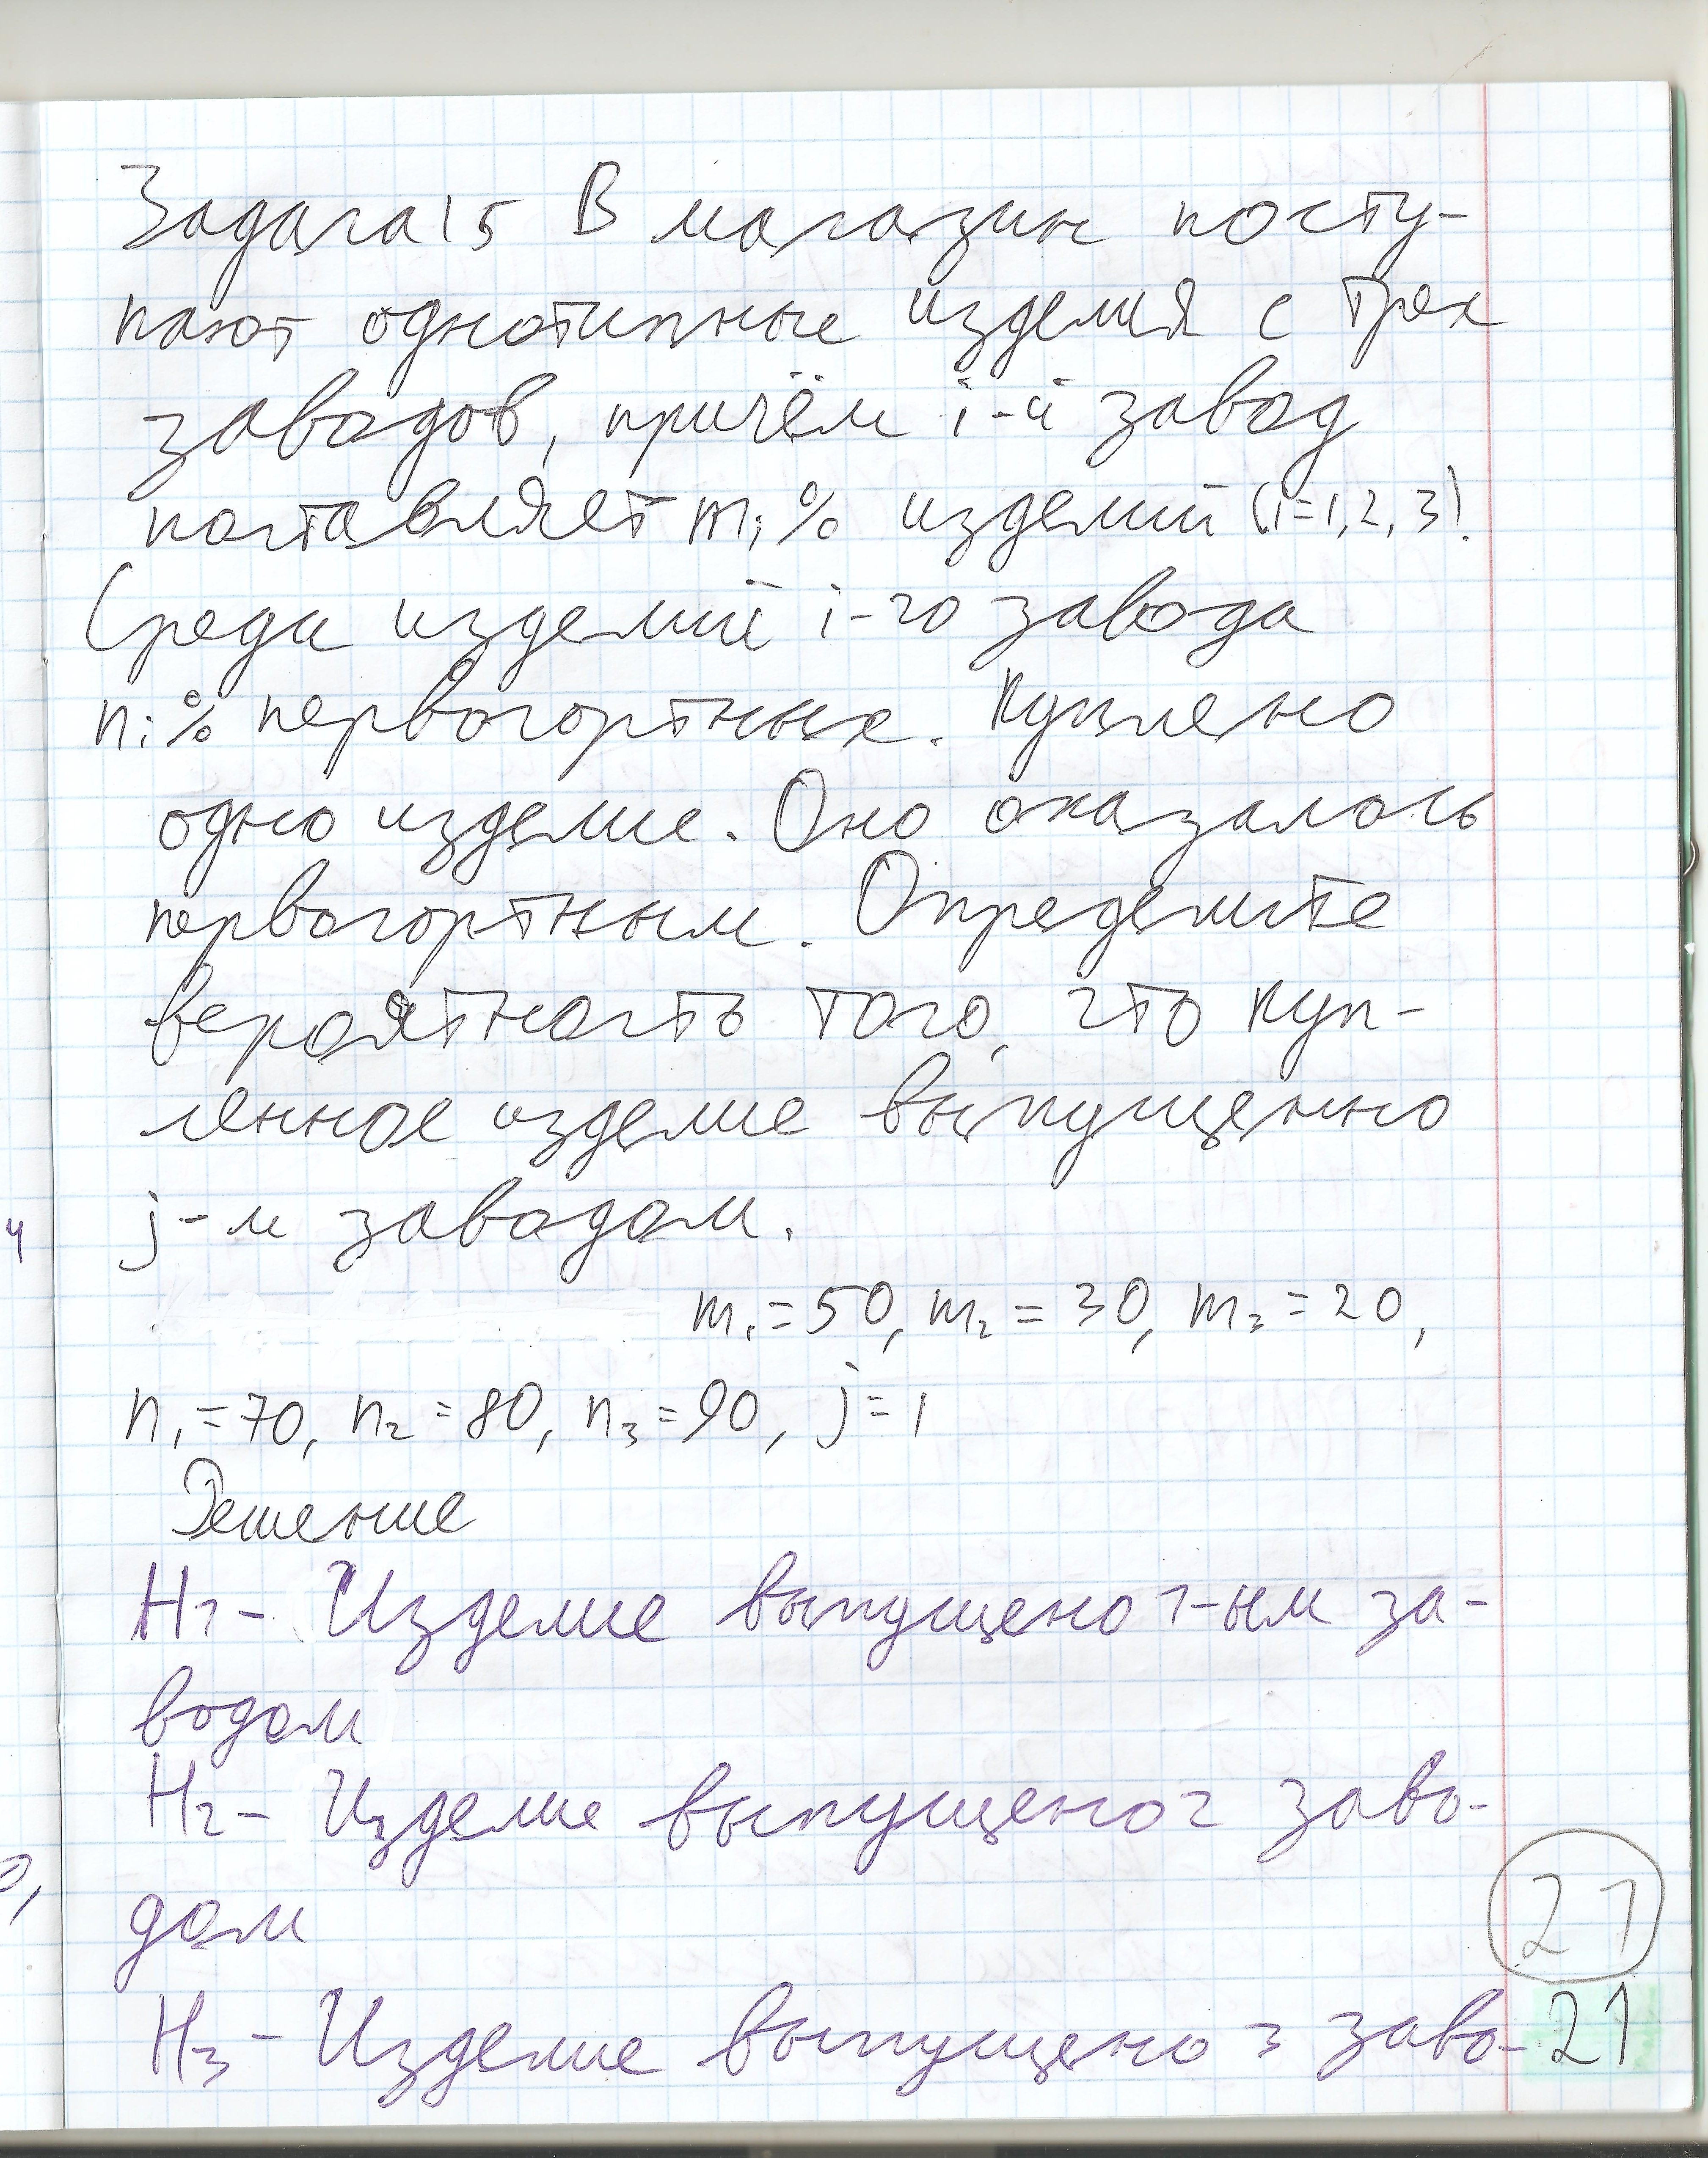 Задача 15 В магазин посту-
пают однотипные изделия с трех
заводов, причём i-й завод
поставляет mi % изделий (i=1,2,3).
Среди изделий i-го завода
ni% первосортных. Куплено
одно изделие. Оно оказалось
первосортным. Определите
вероятность того, что куп-
ленное изделие выпущенно
j-м заводом.
m1=50, m2=30, m3=20,
n1=70, n2=80, n3=90, j=1
Решение
H1- Изделие выпущено 1-ым за-
водом
H2- Изделие выпущено 2 заво-
дом
H3- Изделие выпущено 3 заво-
21
21